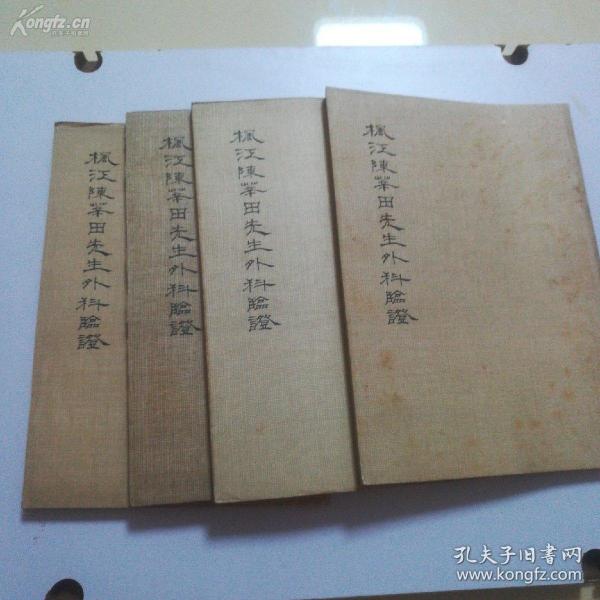 Kongfz.cn
孔夫子旧书网
楓江陳莘田先生外科臨證
楓江陳莘田先生外科臨證
楓江陳莘田先生外科臨證
楓江陳莘田先生外科臨證
孔夫子旧书网
www.kongfz.com